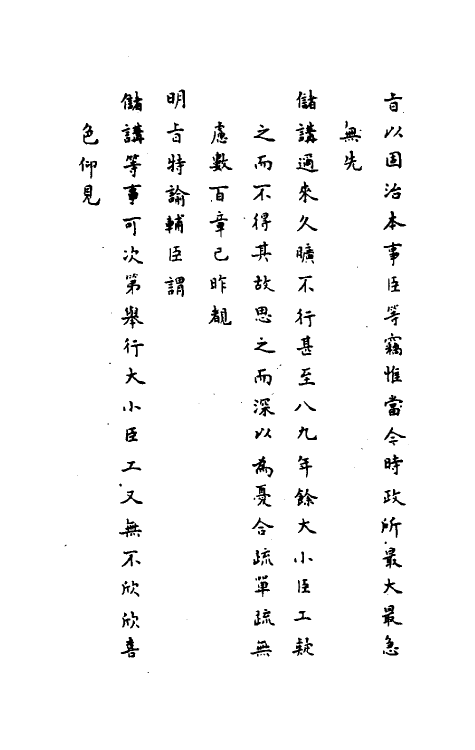 旨以固治本事臣等竊惟當今時政所最大最急
無先
儲講邇來久曠不行甚至八九年餘大小臣工疑
之而不得其故思之而深以為憂合疏單疏無
慮數百章已昨覩
明旨特諭輔臣謂
儲講等事可次第舉行大小臣工又無不欣欣喜
色仰見